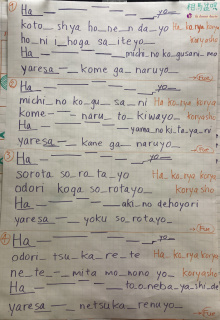 ① Ha __ __ __ __ __ yo_
koto_ shya ho_ne_n da_yo Ha_ka_ryo koryo
ho_ni i_hoga sa_iteyo_ koryasho
Ha __ __ __ michi_no ko_gusani_mo
yaresa_ — _ kome ga_ naruyo_
→Fue
② Ha __ __ __ __ yo_
michi_no ko_gu_sa_ni Ha_ka_ryo koryo
kome_ — naru_to_kiwayo_ koryasho
Ha __ __ __ yama_no ki_ta_ya_ni
yaresa_ — _ kane ga_ naruyo_
→Fue
③ Ha __ __ __ __ yo_
sorota so_ro_ta_yo Ha_ka_ryo koryo
odori koga so_rotayo_ koryasho
Ha __ __ __ aki_no dehoyori
yaresa_ — _ yoku so_rotayo_
→Fue
④ Ha __ __ __ __ yo_
odori_tsu_ka_re_te Ha_ka_ryo koryo
ne_te_ — _mita mo_nono yo_ koryasho
Ha __ __ __ to_o_neba_ya_shi_de
yaresa_ — _ netsuka_renuyo_
→Fue